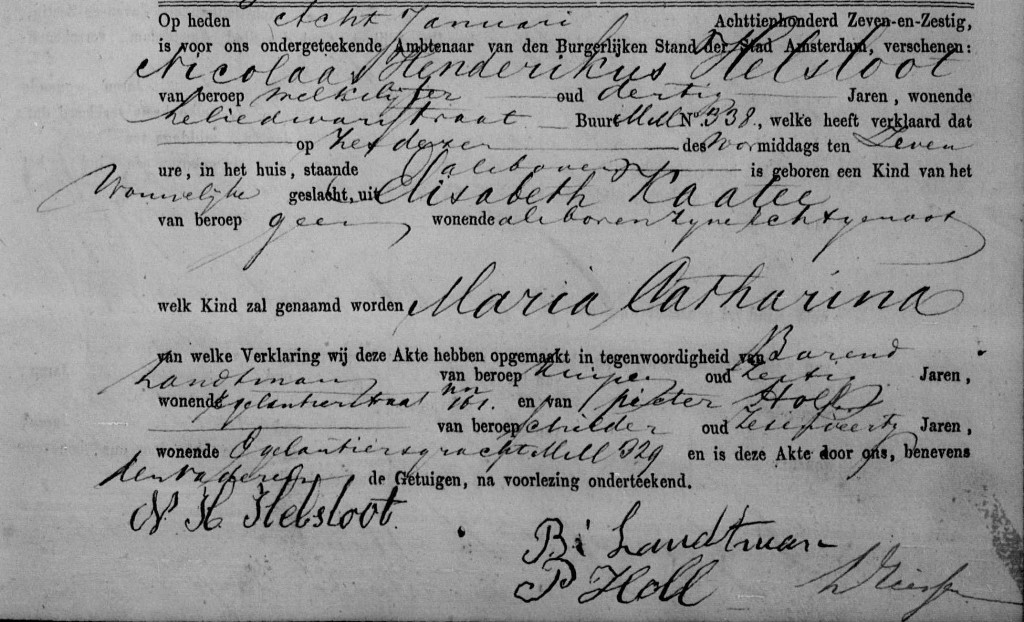 Op heden Acht Januari Achttienhonderd Zeven-en-Zestig,
is voor ons ondergeteekende Ambtenaar van den Burgerlijken Stand der Stad Amsterdam, verschenen:
Nicolaas Henderikus Helsloot
van beroep melkslijter oud dertig Jaren, wonende
Leliedwarsstraat Buurt MM No. 338., welke heeft verklaard dat
op zes dezer des Voormiddags ten Zeven
ure, in het huis, staande alsboven is geboren een Kind van het
Vrouwelijke geslacht, uit Elisabeth Kaatee
van beroep geen wonende alsboven zyne echtgenoot
welk Kind zal genaamd worden Maria Catharina
van welke Verklaring wij deze Akte hebben opgemaakt in tegenwoordigheid van Barend
Landtman van beroep Kuiper oud zestig Jaren,
wonende Egelantierstraat 161. en van pieter Holl
van beroep Schilder oud Zesenveertig Jaren,
wonende Egelantiersgracht MM 329 en is deze Akte door ons, benevens
den vader en de Getuigen, na voorlezing onderteekend.
N. H. Helsloot.
B. Landtman
P Holl